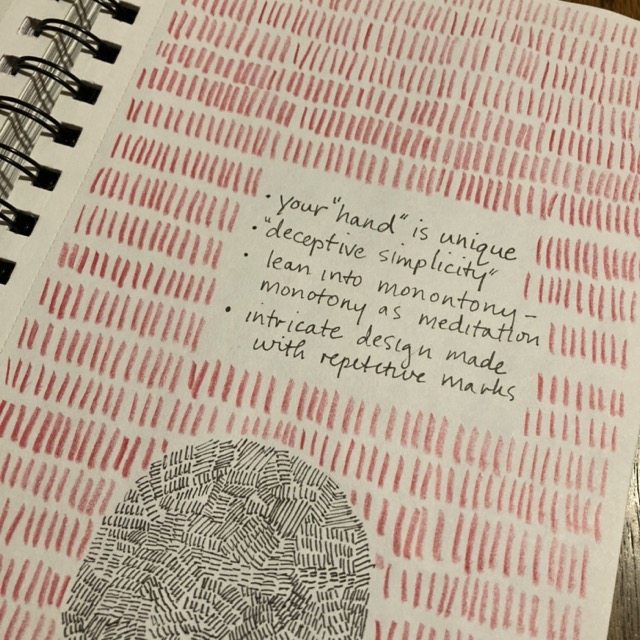 • your "hand" is unique
• "deceptive simplicity"
• lean into monontony –
monotony as meditation
• intricate design made
with repetitive marks